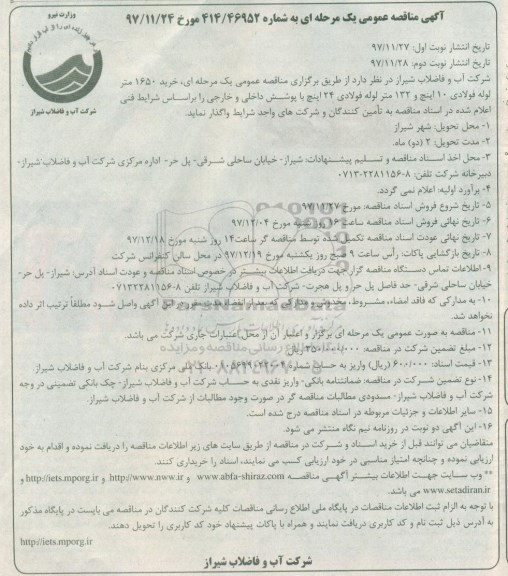 آگهی مناقصه عمومی یک مرحله ای به شماره ۴۱۴/۴۶۹۵۲ مورخ ۹۷/۱۱/۲۴
وزارت نیرو
شرکت آب و فاضلاب شیراز
تاریخ انتشار نوبت اول: ۹۷/۱۱/۲۷
تاریخ انتشار نوبت دوم: ۹۷/۱۱/۲۸
شرکت آب و فاضلاب شیراز در نظر دارد از طریق برگزاری مناقصه عمومی یک مرحله ای، خرید ۱۶۵۰ متر
لوله فولادی ۱۰ اینچ و ۱۳۲ متر لوله فولادی ۲۴ اینچ با پوشش داخلی و خارجی را براساس شرایط فنی
اعلام شده در اسناد مناقصه به تأمین کنندگان و شرکت های واجد شرایط واگذار نماید.
۱- محل تحویل: شهر شیراز
۲- مدت تحویل: ۲ (دو) ماه.
۳- محل اخذ اسناد مناقصه و تسلیم پیشنهادات: شیراز- خیابان ساحلی شرقی- پل حر- اداره مرکزی شرکت آب و فاضلاب شیراز-
دبیرخانه شرکت تلفن: ۸-۰۷۱۳۲۲۸۱۱۵۶
۴- برآورد اولیه: اعلام نمی گردد.
۵- تاریخ شروع فروش اسناد مناقصه: مورخ ۹۷/۱۱/۲۷
۶- تاریخ نهائی فروش اسناد مناقصه ساعت ۱۶ روز شنبه مورخ ۹۷/۱۲/۰۴
۷- تاریخ نهائی عودت اسناد مناقصه تکمیل شده توسط مناقصه گر ساعت ۱۴ روز شنبه مورخ ۹۷/۱۲/۱۸
۸- تاریخ بازگشایی پاکات: رأس ساعت ۹ صبح روز یکشنبه مورخ ۹۷/۱۲/۱۹ در محل سالن کنفرانس شرکت
۹- اطلاعات تماس دستگاه مناقصه گزار جهت دریافت اطلاعات بیشتر در خصوص اسناد مناقصه و عودت اسناد آدرس: شیراز- پل حر-
خیابان ساحلی شرقی- حد فاصل پل حر و پل هجرت- شرکت آب و فاضلاب شیراز تلفن ۸-۰۷۱۳۲۲۸۱۱۵۶
۱۰- به مدارکی که فاقد امضاء، مشروط، مخدوش و مدارکی که بعد از انقضاء مدت مقرر در این آگهی واصل شود مطلقاً ترتیب اثر داده
نخواهد شد.
۱۱- مناقصه به صورت عمومی یک مرحله ای برگزار و اعتبار آن از محل اعتبارات جاری شرکت می باشد.
۱۲- مبلغ تضمین شرکت در مناقصه: ریال
۱۳- قیمت اسناد: ۶۰۰/۰۰۰ (ریال) واریز به حساب شماره بانک ملی مرکزی بنام شرکت آب و فاضلاب شیراز
۱۴- نوع تضمین شرکت در مناقصه: ضمانتنامه بانکی- واریز نقدی به حساب شرکت آب و فاضلاب شیراز- چک بانکی تضمینی در وجه
شرکت آب و فاضلاب شیراز- مسدودی مطالبات مناقصه گر در صورت وجود مطالبات از شرکت آب و فاضلاب شیراز.
۱۵- سایر اطلاعات و جزئیات مربوطه در اسناد مناقصه درج شده است.
۱۶- این آگهی دو نوبت در روزنامه نیم نگاه منتشر می شود.
متقاضیان می توانند قبل از خرید اسناد و شرکت در مناقصه از طریق سایت های زیر اطلاعات مناقصه را دریافت نموده و اقدام به خود
ارزیابی نموده و چنانچه امتیاز مناسبی در خود ارزیابی کسب می نمایند، اسناد را خریداری کنند.
** وب سایت جهت اطلاعات بیشتر آگهی مناقصه www.abfa-shiraz.com و http://www.nww.ir و http://iets.mporg.ir و
www.setadiran.ir می باشد.
با توجه به الزام ثبت اطلاعات مناقصات در پایگاه ملی اطلاع رسانی مناقصات کلیه شرکت کنندگان در مناقصه می بایست در پایگاه مذکور
به آدرس ذیل ثبت نام و کد کاربری دریافت نمایند و همراه با پاکات پیشنهاد خود کد کاربری را تحویل دهند.
http://iets.mporg.ir
شرکت آب و فاضلاب شیراز